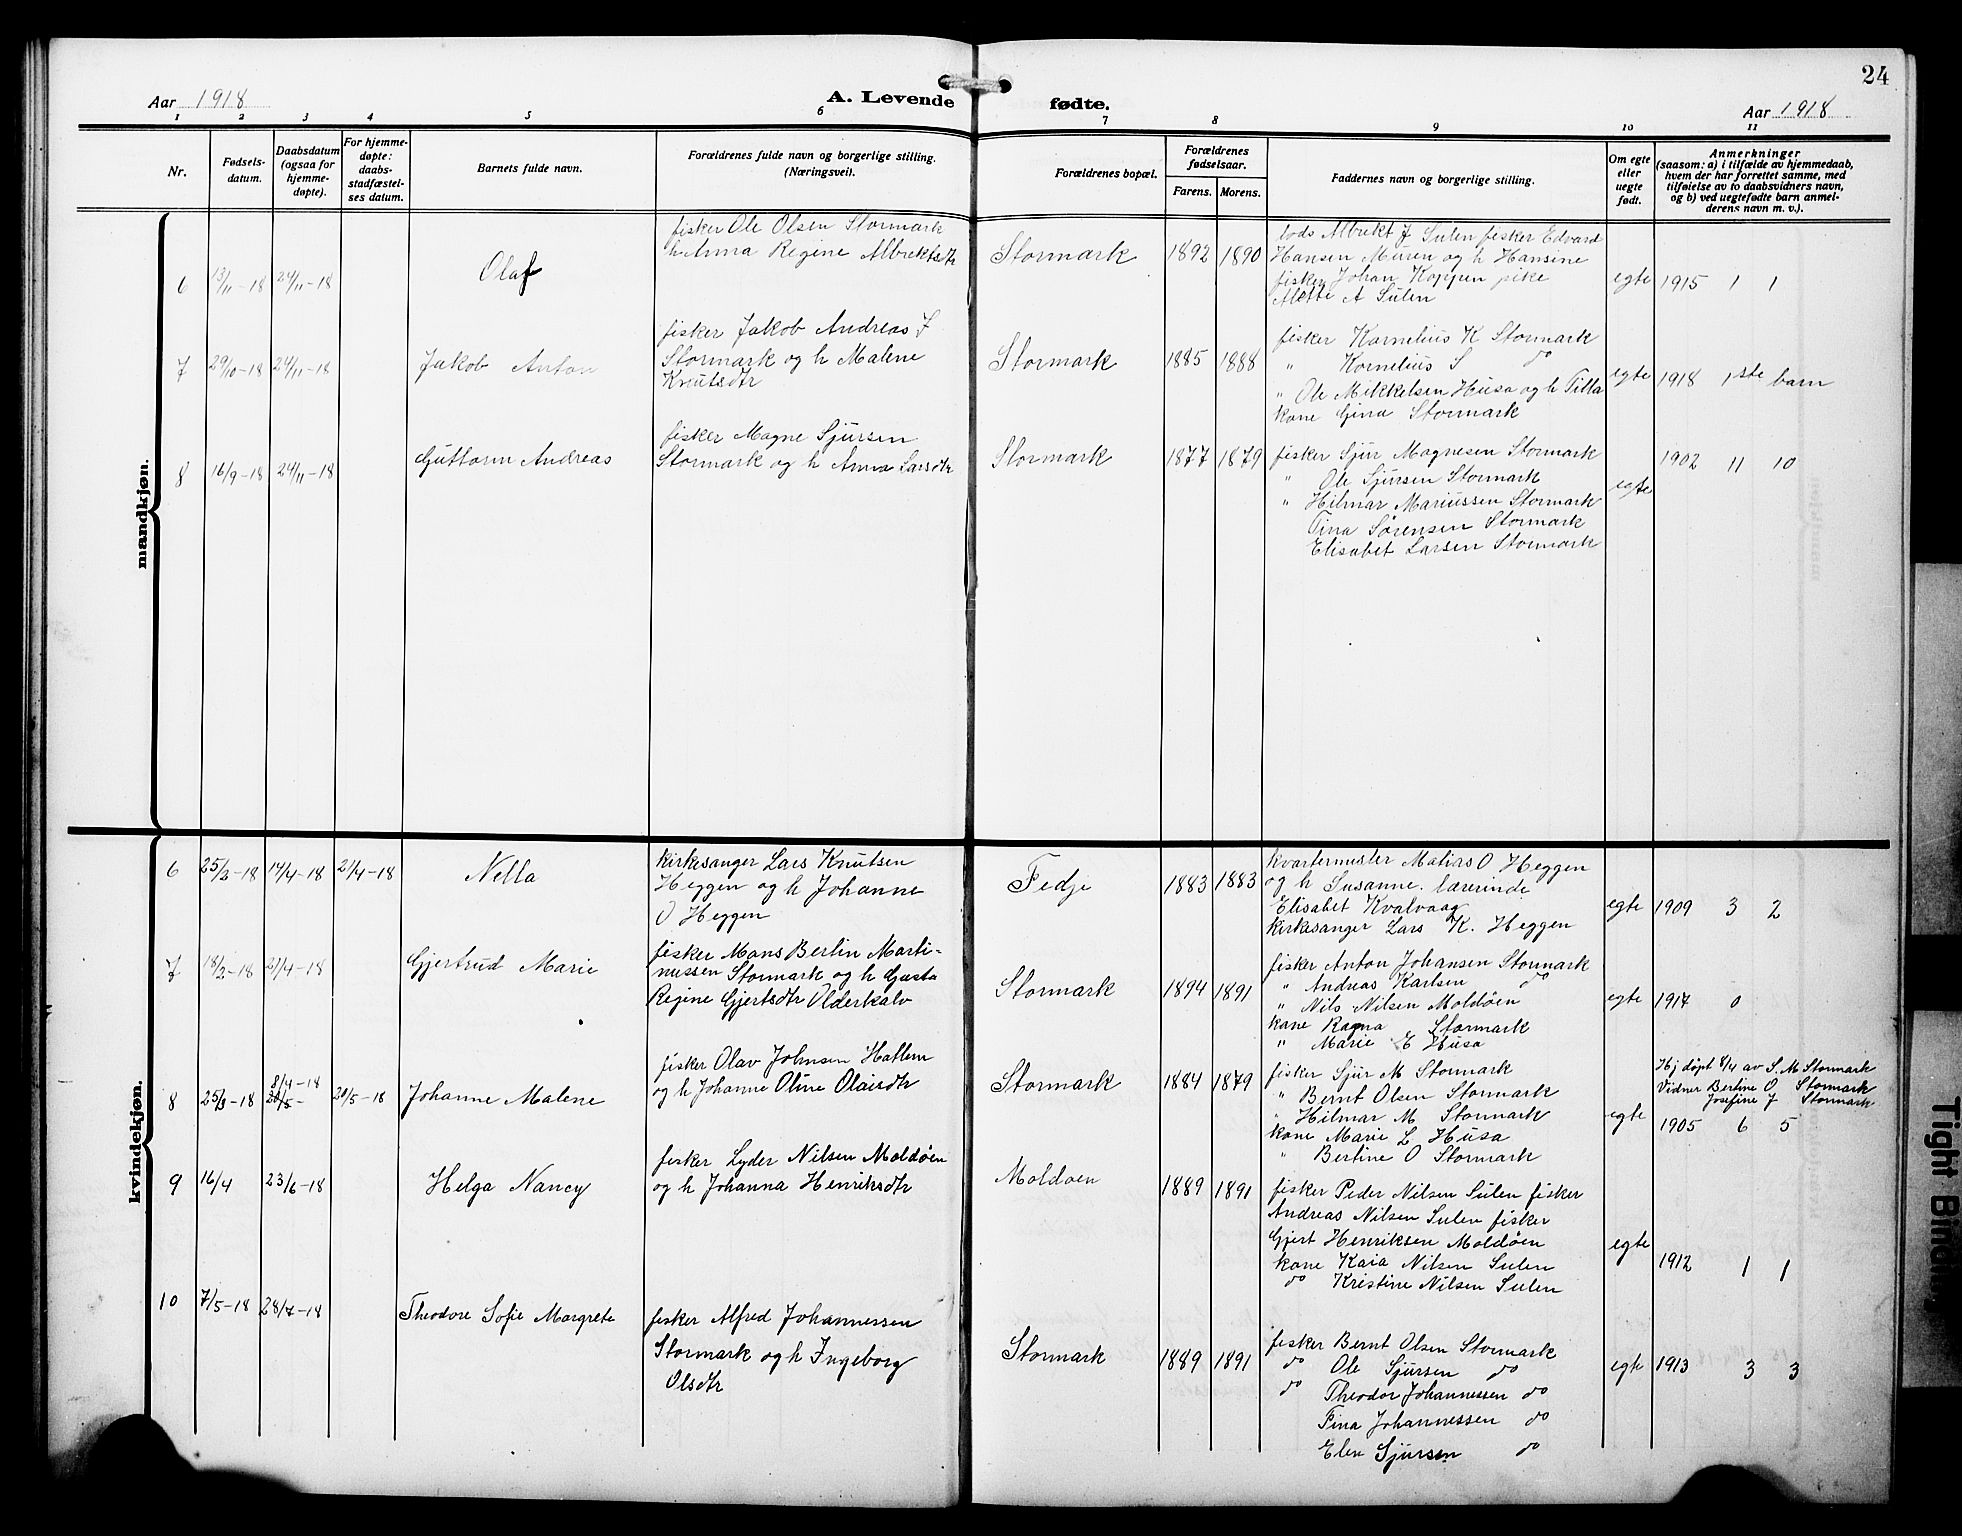 24
Aar 1918
A. Levende fødte.
Aar 1918
1 2 3 4 5 6 7 8 9 10 11
Nr.
Fødsels-
datum.
Daabsdatum
(ogsaa for
hjemme-
døpte).
For hjemme-
døpte:
daabs-
stadfæstel-
ses datum.
Barnets fulde navn.
Forældrenes fulde navn og borgerlige stilling.
(Næringsvei).
Forældrenes bopæl.
Forældrenes
fødselsaar.
Farens. Morens.
Faddernes navn og borgerlige stilling.
Om egte
eller
uegte
født.
Anmerkninger
(saasom: a) i tilfælde av hjemmedaab,
hvem der har forrettet samme, med
tilføielse av to daabsvidners navn,
og b) ved uegtefødte barn anmel-
derens navn m. v.).
mandkjøn.
6 13/11-18 24/11-18
Olaf
fisker Ole Olsen Stormark
h Anna Regine Albrektsdtr
Stormark 1892 1890
lods Albrekt J Sulen fisker Edvard
Hansen Muren og h Hansine
fisker Johan Koppen pike
Mette A Sulen
egte 1915 1 1
7 29/10-18 24/11-18
Jakob Anton
fisker Jakob Andreas S
Stormark og h Malene
Knutsdtr
Stormark 1885 1888
fisker Kornelius K Stormark
" Kornelius S do
" Ole Mikkelsen Husa og h Tilla
kone Gina Stormark
egte 1918 1ste barn
8 16/9-18 24/11-18
Guttorm Andreas
fisker Magne Sjursen
Stormark og h Anna Larsdtr
Stormark 1877 1879
fisker Sjur Magnesen Stormark
" Ole Sjursen Stormark
" Hilmar Mariussen Stormark
Tina Sørensen Stormark
Elisabet Larsen Stormark
egte 1902 11 10
kvindekjøn.
6 25/2-18 14/4-18 21/4-18
Nella
kirkesanger Lars Knutsen
Heggen og h Johanne
O Heggen
Fedje 1883 1883
kvartermester Matias O Heggen
og h Susanne. lærerinde
Elisabet Kvalvaag
kirkesanger Lars K. Heggen
egte 1909 3 2
7 18/2-18 21/4-18
Gjertrud Marie
fisker Mons Bertin Marti-
nussen Stormark og h Gusta
Regine Gjertsdtr Olderkalv
Stormark 1894 1891
fisker Anton Johansen Stormark
" Andreas Karlsen do
" Nils Nilsen Moldöen
kone Ragna Stormark
" Marie E Husa
egte 1917 0
8 25/3-18 8/4-18 20/5- 20/5-18
Johanne Malene
fisker Olav Johnsen Hatlem
og h Johanne Oline Olaisdtr
Stormark 1884 1879
fisker Sjur M Stormark
" Bernt Olsen Stormark
" Hilmar M Stormark
kone Marie L Husa
" Bertine O Stormark
egte
Hj døpt 8/4 av S. M Stormark
Vidner Bertine O. Stormark
Josefine J Stormark
1905 6 5
9 16/4 23/6-18
Helga Nancy
fisker Lyder Nilsen Moldöen
og h Johanna Henriksdtr
Moldoen 1889 1891
fisker Peder Nilsen Sulen fisker
Andreas Nilsen Sulen fisker
Gjert Henriksen Moldöen
kone Kaia Nilsen Sulen
do Kristine Nilsen Sulen
egte 1912 1 1
10 7/5-18 28/7-18
Theodore Sofie Margrete
fisker Alfred Johannessen
Stormark og h Ingeborg
Olsdtr
Stormark 1889 1891
fisker Bernt Olsen Stormark
do Ole Sjursen do
do Theodor Johannessen do
Tina Johannessen do
Elen Sjursen do
egte 1913 3 3